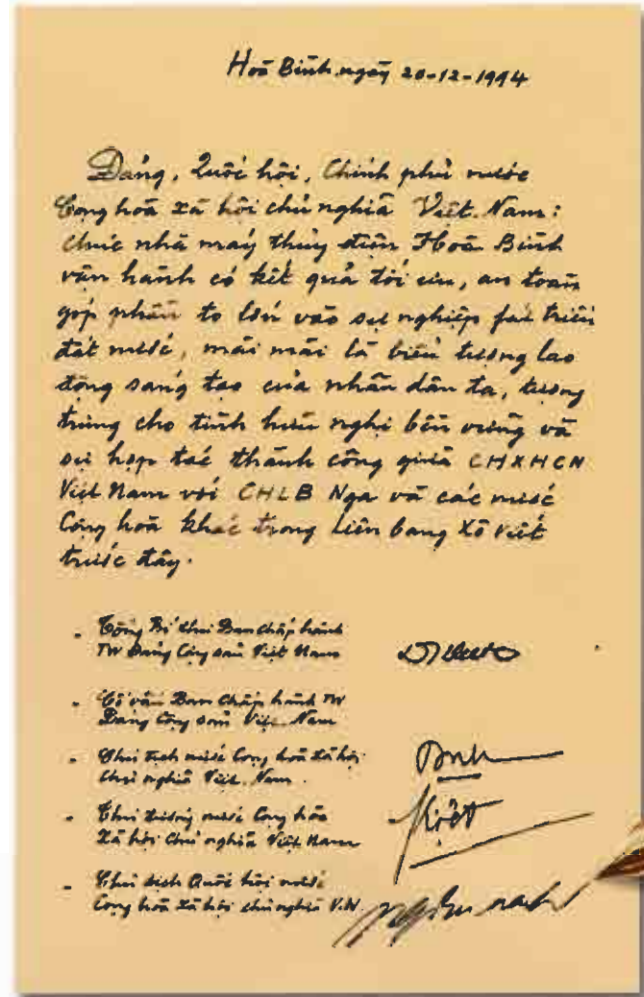 Hoà Bình, ngày 20-12-1994
Đảng, Quốc hội, Chính phủ nước
Cộng hoà xã hội chủ nghĩa Việt Nam:
Chúc nhà máy thủy điện Hoà Bình
vận hành có kết quả tối ưu, an toàn
góp phần to lớn vào sự nghiệp fát triển
đất nước, mãi mãi là biểu tượng lao
động sáng tạo của nhân dân ta, tượng
trưng cho tình hữu nghị bền vững và
sự hợp tác thành công giữa CHXHCN
Việt Nam với CHLB Nga và các nước
Cộng hoà khác trong Liên bang Xô Viết
trước đây.
- Tổng Bí thư Ban chấp hành
TW Đảng Cộng sản Việt Nam
- Cố vấn Ban Chấp hành TW
Đảng Cộng sản Việt Nam
- Chủ tịch nước Cộng hoà xã hội
chủ nghĩa Việt Nam.
- Thủ tướng nước Cộng hoà
xã hội chủ nghĩa Việt Nam
Kiệt
- Chủ tịch Quốc hội nước
Cộng hoà xã hội chủ nghĩa V.N.